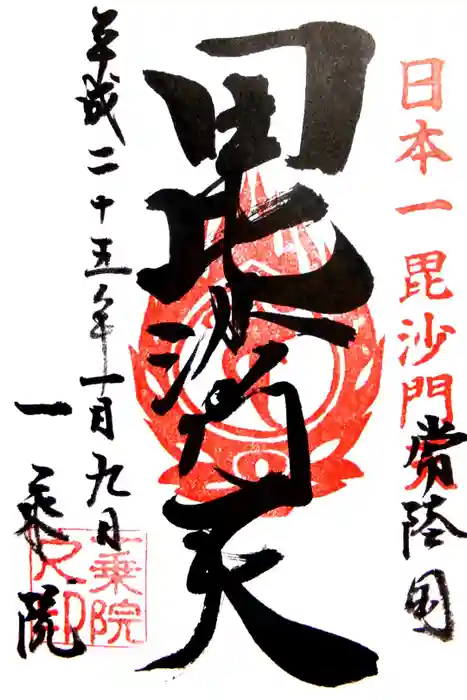 日本一毘沙門
常陸国
毘沙門天
平成二十五年一月九日
一乗院
一乗院